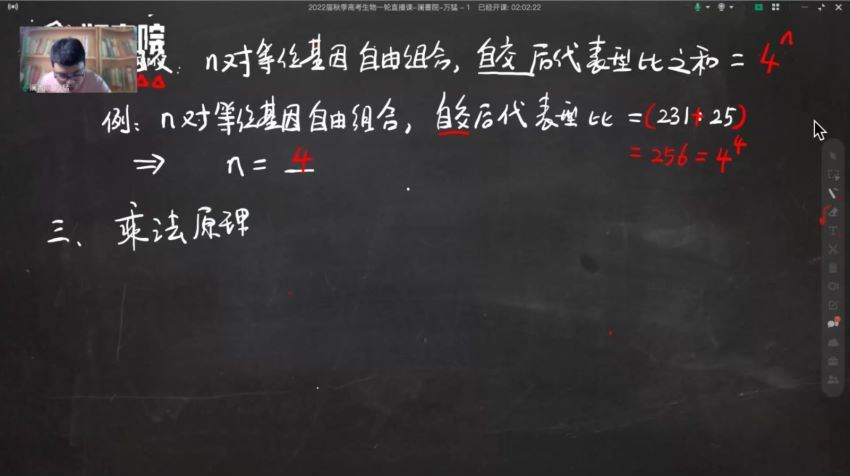 2022届秋季高考生物一轮直播课-澜書院-万猛 - 1 已经开课: 02:02:22
n对等位基因自由组合，自交后代表型比之和 = 4ⁿ
例：n对等位基因自由组合，自交后代表型比 = (231:25)
= 256 = 4⁴
⇒ n = 4
三、乘法原理